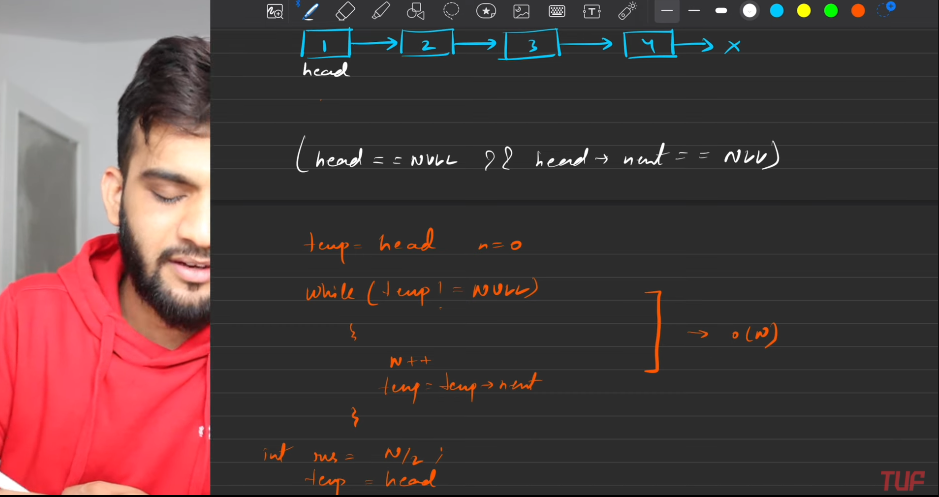 1 → 2 → 3 → 4 → x
head
(head == NULL || head → next == NULL)
temp = head n = 0
while (temp != NULL)
{
N++
temp = temp → next
}
] → O(N)
int res = N/2 ;
temp = head
TUF